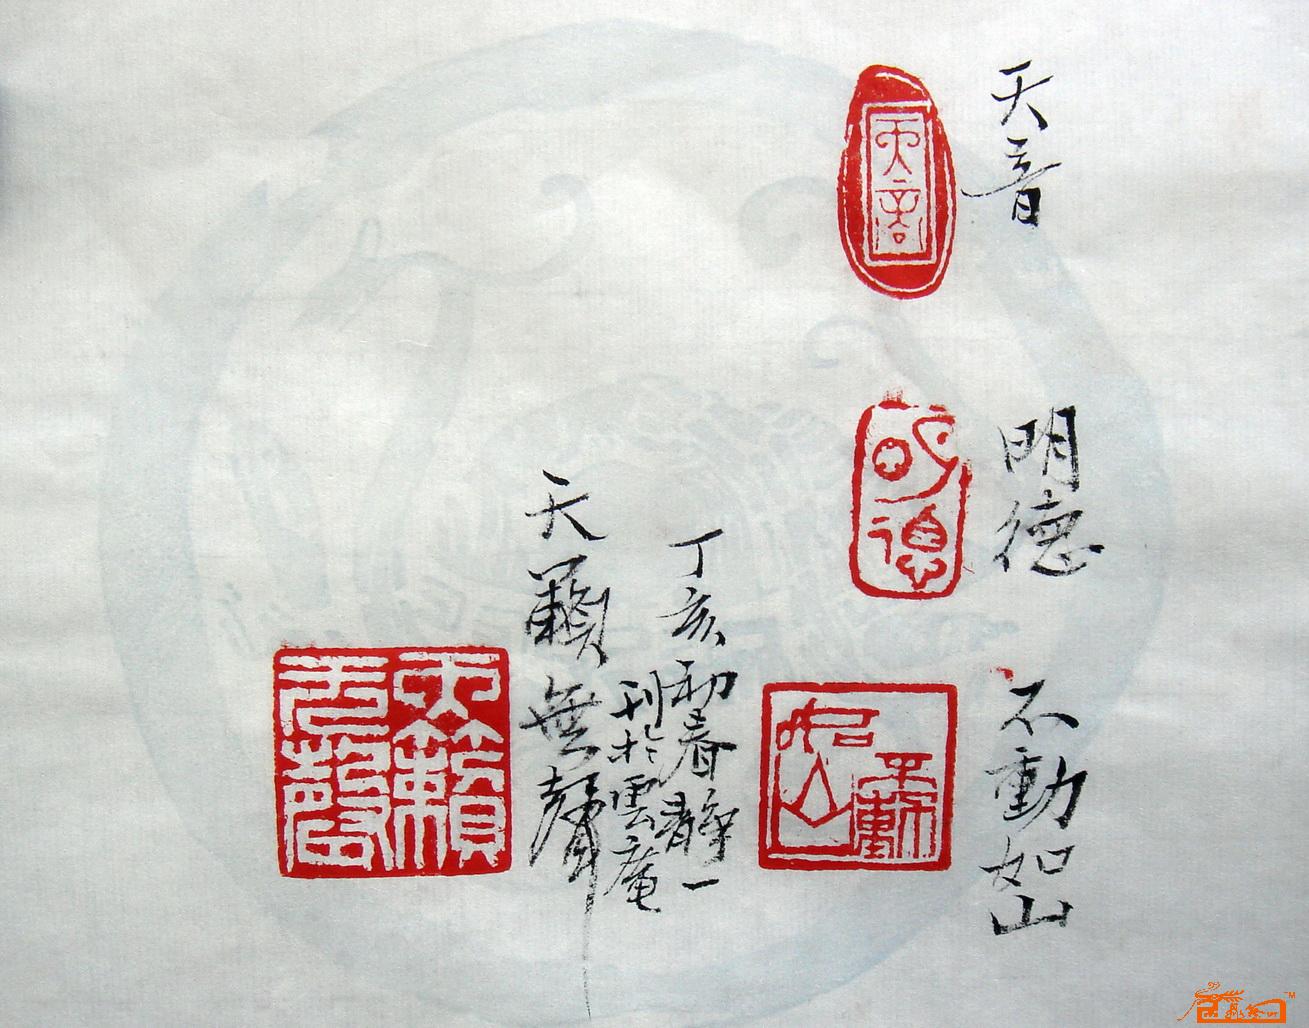 天音
天音
明德
明德
不動如山
不動如山
丁亥初春靜一
刊於雲庵
天籟無聲
天籟无聲